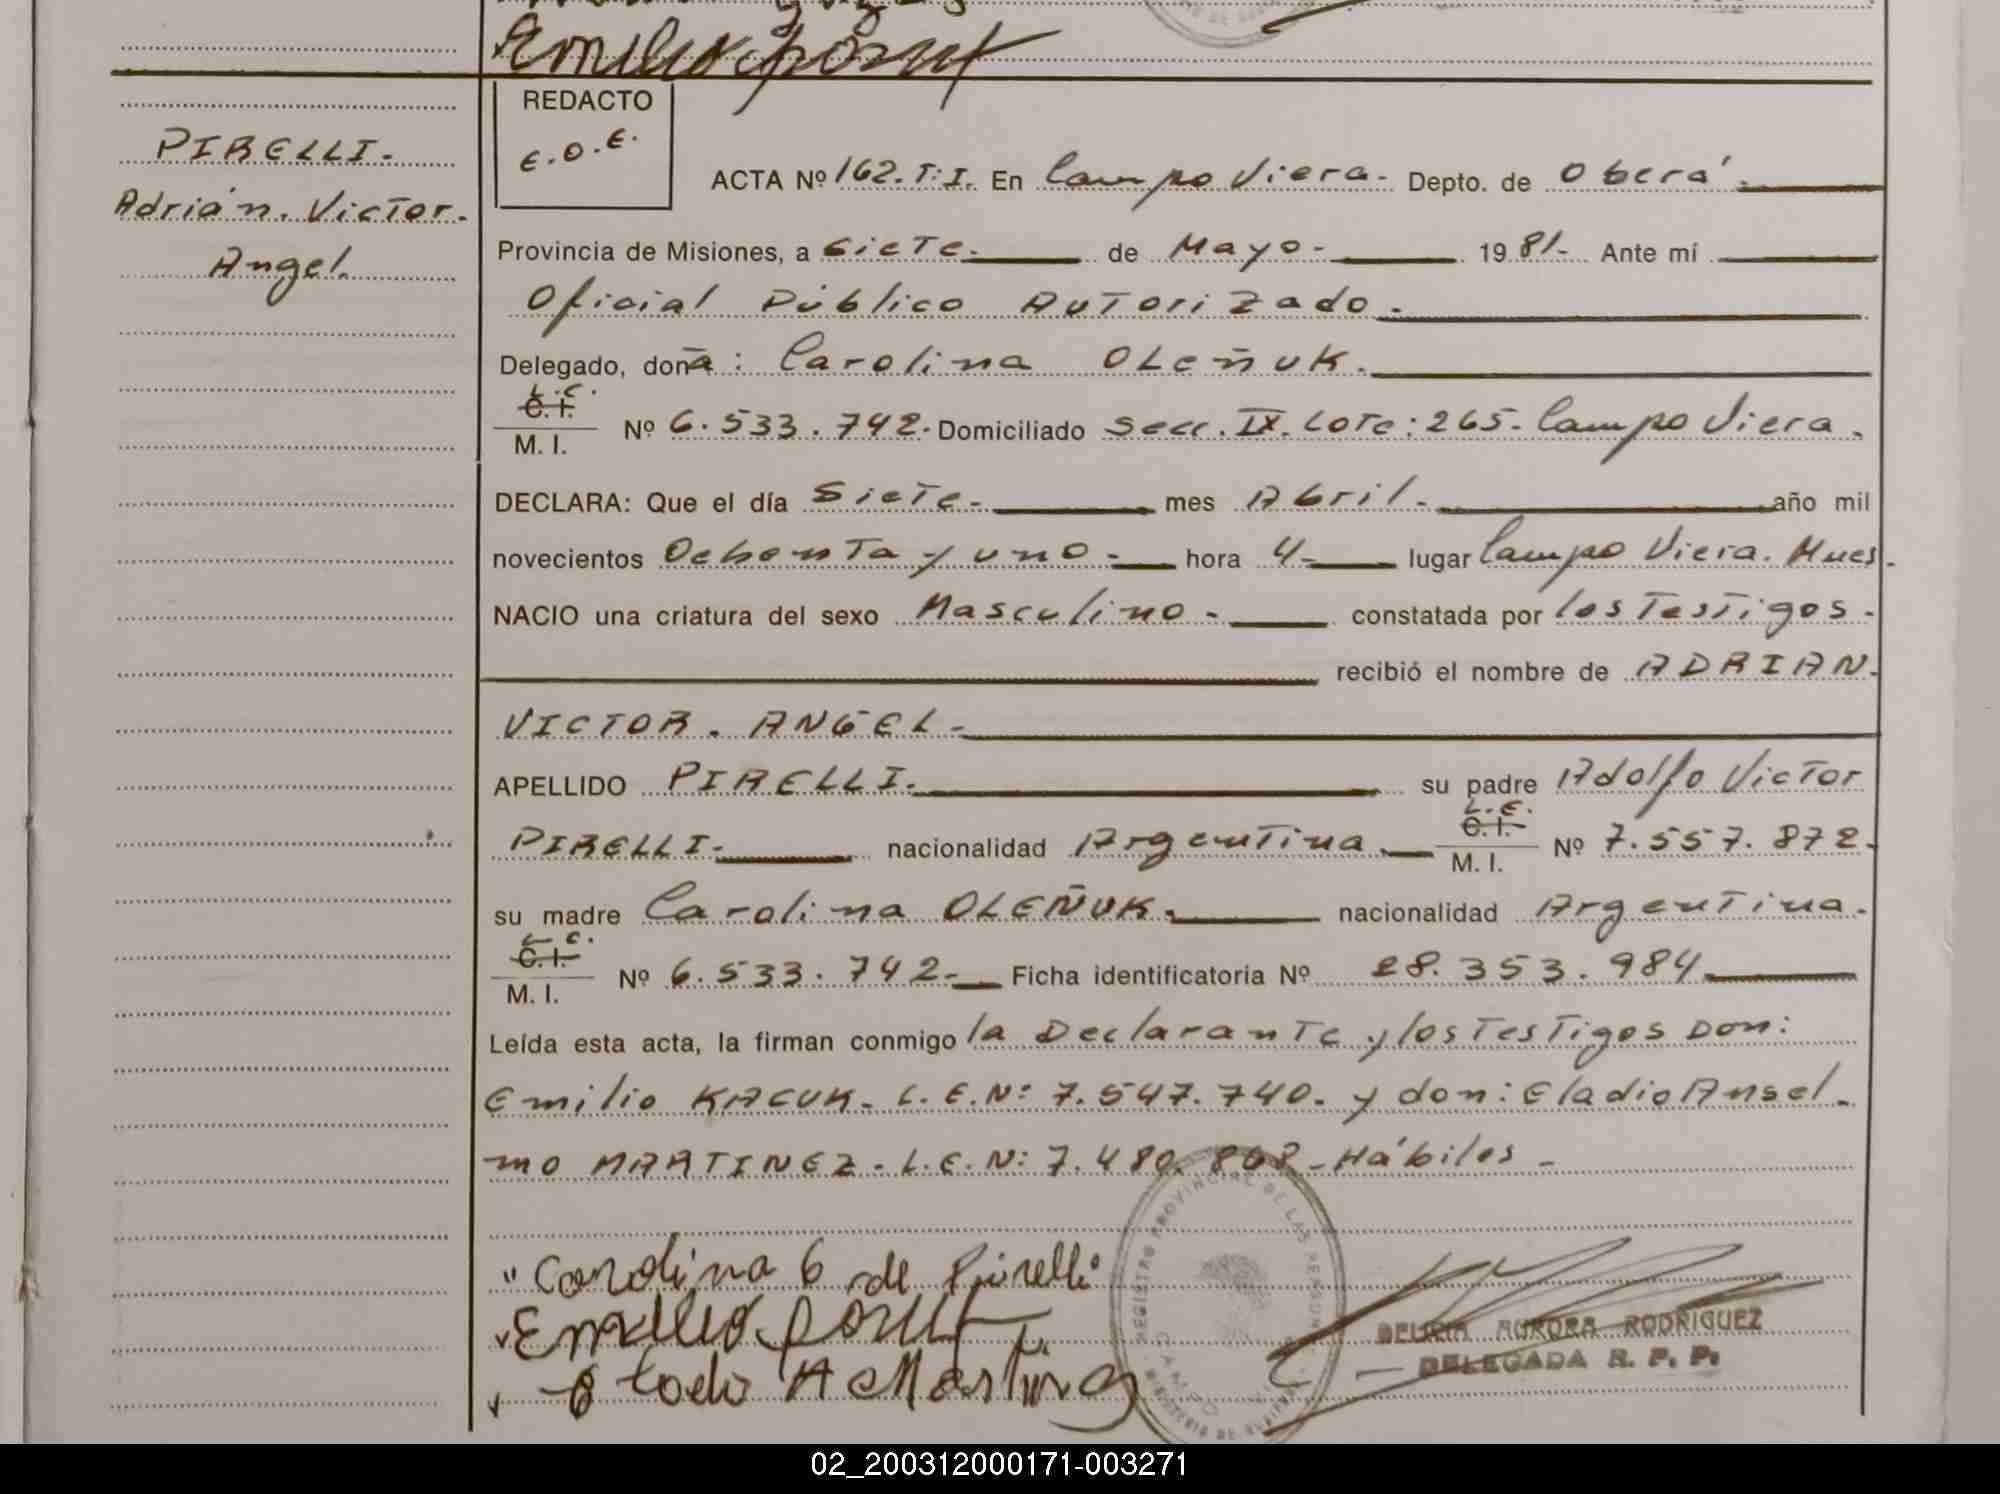 REDACTO
E.O.E.
PIRELLI.
Adrián. Victor.
Angel.
ACTA Nº 162. T: I. En Campo Viera. Depto. de Oberá.
Provincia de Misiones, a siete. de Mayo. 1981. Ante mí
Oficial Público Autorizado.
Delegado, doña: Carolina OLEÑUK.
L.C.
C. I.
M. I. Nº 6.533.742. Domiciliado Secc. IX. Lote: 265. Campo Viera.
DECLARA: Que el día Siete. mes Abril. año mil
novecientos Ochenta y uno. hora 4 lugar Campo Viera. Mnes.
NACIO una criatura del sexo Masculino. constatada por los Testigos.
recibió el nombre de ADRIAN.
VICTOR. ANGEL.
APELLIDO PIRELLI. su padre Adolfo Victor
L.E.
C. I.
PIRELLI. nacionalidad Argentina. M. I. Nº 7.557.872.
su madre Carolina OLEÑUK. nacionalidad Argentina.
L.C.
C. I.
M. I. Nº 6.533.742. Ficha identificatoria Nº 28.353.984
Leída esta acta, la firman conmigo la Declarante y los Testigos Don:
Emilio KACUK. L.E.Nº: 7.547.740. y don: Eladio Ansel-
mo MARTINEZ. L.E.Nº: 7.480.868. Hábiles.
Carolina de Pirelli
REGISTRO PROVINCIAL DE LAS PERSONAS
AURORA RODRIGUEZ
DELEGADA R. P. P.
02_200312000171-003271